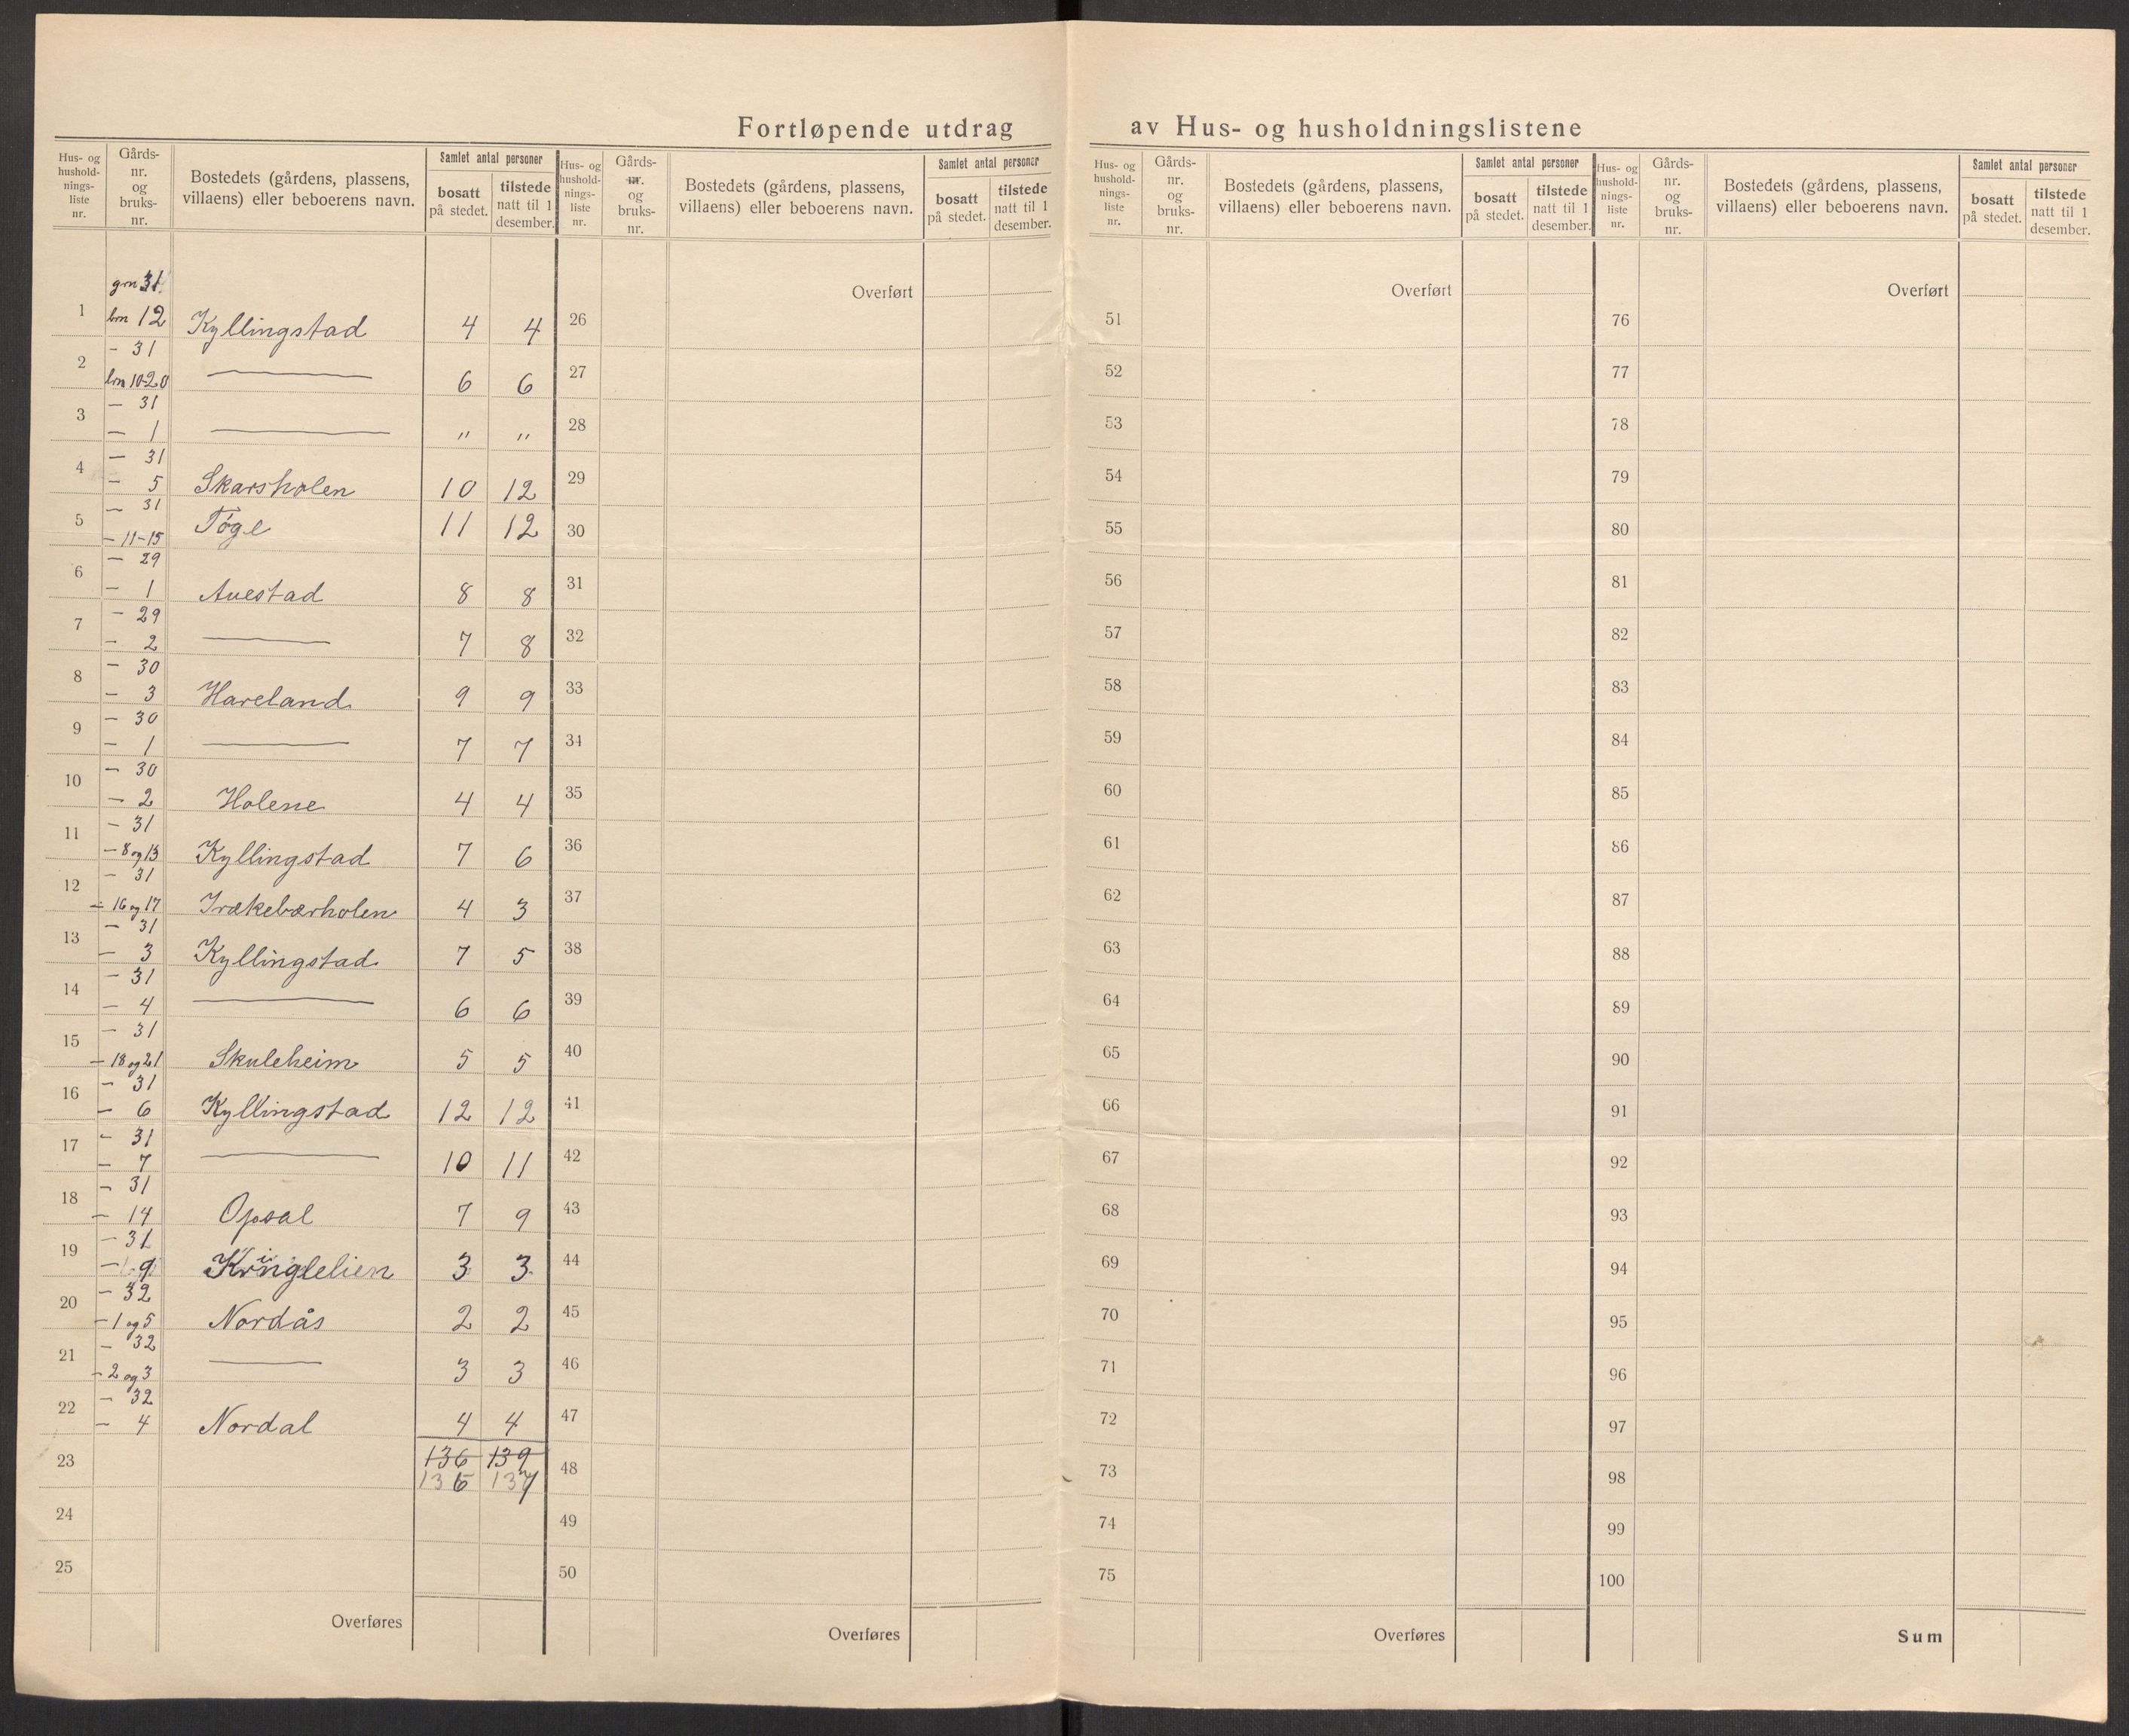 Fortløpende utdrag av Hus- og husholdningslistene
Hus- og husholdnings-liste nr. | Gårds-nr. og bruks-nr. | Bostedets (gårdens, plassens, villaens) eller beboerens navn. | Samlet antal personer | bosatt på stedet. | tilstede natt til 1 desember.
Hus- og husholdnings-liste nr. | Gårds-nr. og bruks-nr. | Bostedets (gårdens, plassens, villaens) eller beboerens navn. | Samlet antal personer | bosatt på stedet. | tilstede natt til 1 desember.
Hus- og husholdnings-liste nr. | Gårds-nr. og bruks-nr. | Bostedets (gårdens, plassens, villaens) eller beboerens navn. | Samlet antal personer | bosatt på stedet. | tilstede natt til 1 desember.
Hus- og husholdnings-liste nr. | Gårds-nr. og bruks-nr. | Bostedets (gårdens, plassens, villaens) eller beboerens navn. | Samlet antal personer | bosatt på stedet. | tilstede natt til 1 desember.
grn 31
1 brn 12 Kyllingstad 4 4
— 31
2 brn 10-20 —— 6 6
— 31
3 — 1 —— " "
— 31
4 — 5 Skarsholen 10 12
— 31
5 — 11-15 Tøge 11 12
— 29
6 — 1 Auestad 8 8
— 29
7 — 2 —— 7 8
— 30
8 — 3 Hareland 9 9
— 30
9 — 1 —— 7 7
— 30
10 — 2 Holene 4 4
— 31
11 — 8 og 13 Kyllingstad 7 6
— 31
12 — 16 og 17 Irækebærholen 4 3
— 31
13 — 3 Kyllingstad 7 5
— 31
14 — 4 —— 6 6
— 31
15 — 18 og 21 Skuleheim 5 5
— 31
16 — 6 Kyllingstad 12 12
— 31
17 — 7 —— 10 11
— 31
18 — 14 Opsal 7 9
— 31
19 — 9 Kringlelien 3 3
— 32
20 — 1 og 5 Nordås 2 2
— 32
21 — 2 og 3 —— 3 3
— 32
22 — 4 Nordal 4 4
23 136 139
136 137
24
25
Overføres
Overført
26
27
28
29
30
31
32
33
34
35
36
37
38
39
40
41
42
43
44
45
46
47
48
49
50
Overføres
Overført
51
52
53
54
55
56
57
58
59
60
61
62
63
64
65
66
67
68
69
70
71
72
73
74
75
Overføres
Overført
76
77
78
79
80
81
82
83
84
85
86
87
88
89
90
91
92
93
94
95
96
97
98
99
100
Sum